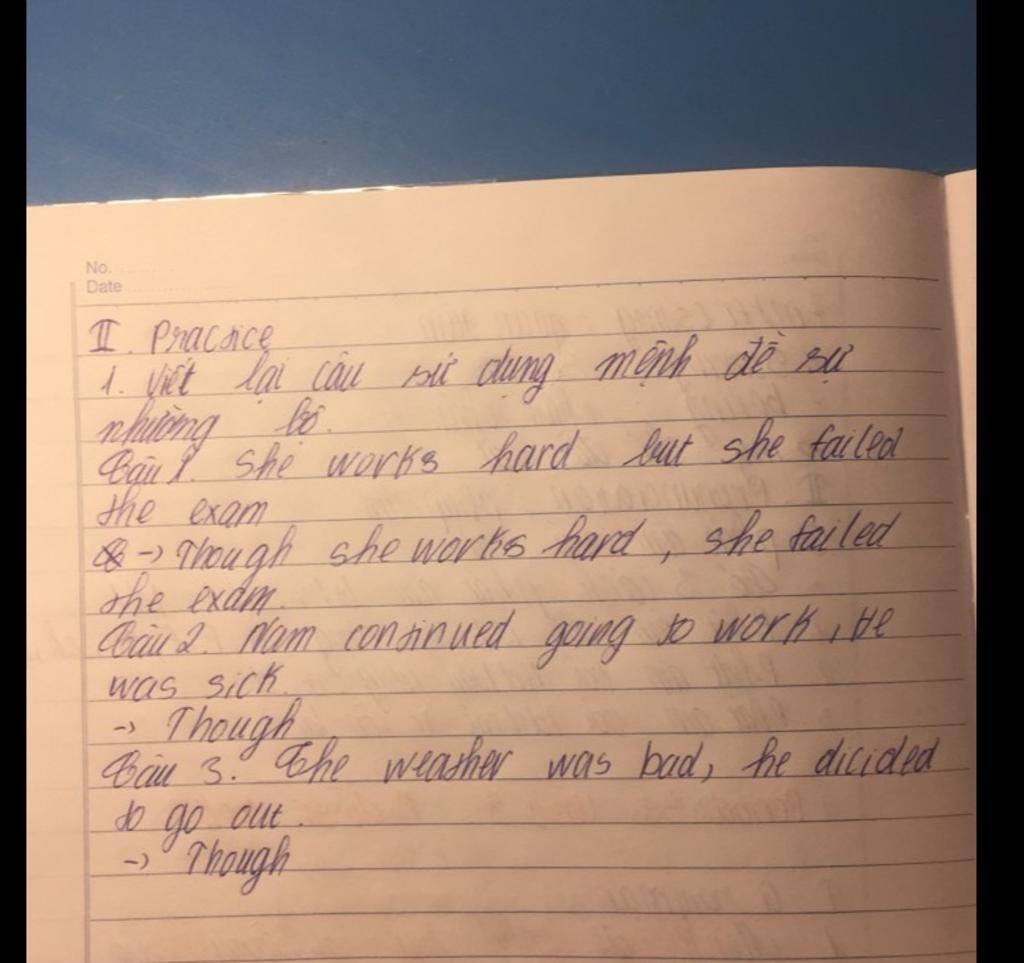 No.
Date
II. Practice
1. Viết lại câu sử dụng mệnh đề sự
nhường bộ.
Câu 1. She works hard but she failed
the exam
-> Though she works hard, she failed
the exam.
Câu 2. Nam continued going to work, He
was sick.
-> Though
Câu 3. The weather was bad, he dicided
to go out.
-> Though